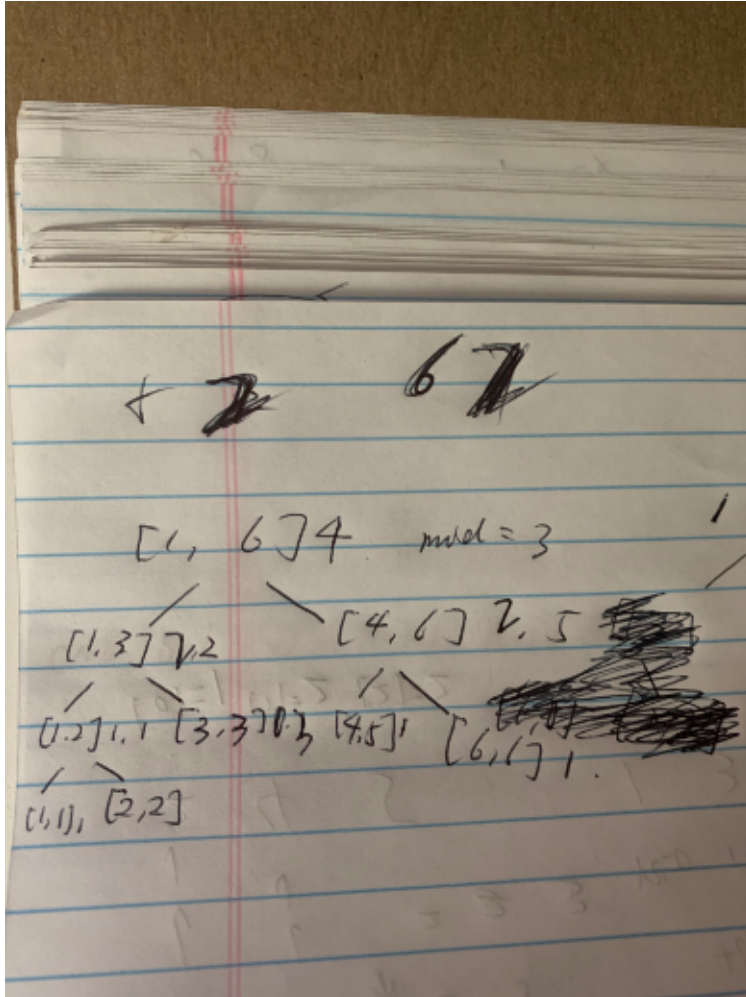 6
[1, 6] 4 mid = 3 1
[1,3] 2,2 [4,6] 2, 5
[1.2] 1, 1 [3,3] [4,5] 1 [6,6] 1.
[1,1], [2,2]